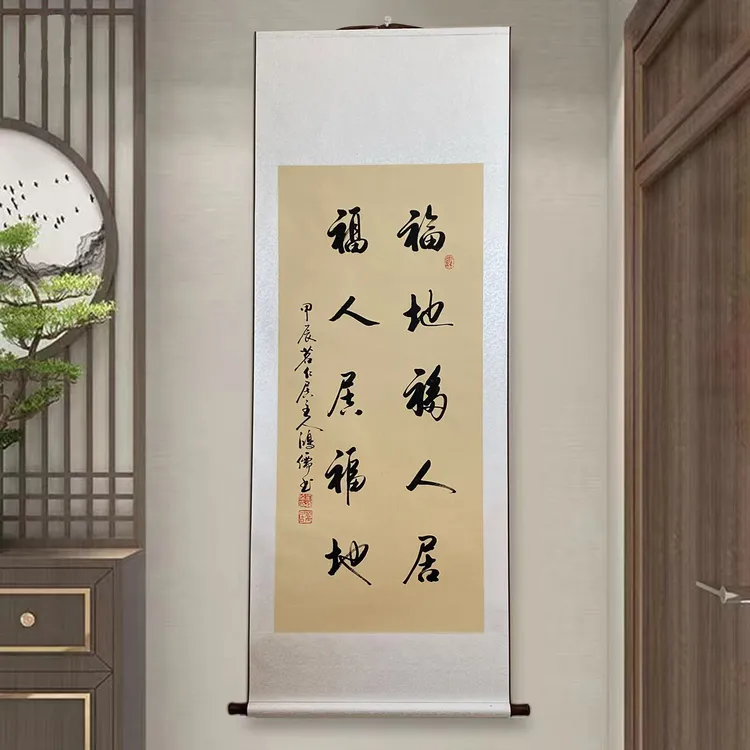 福地福人居
福人居福地
甲辰茗仁居主人鴻儒书